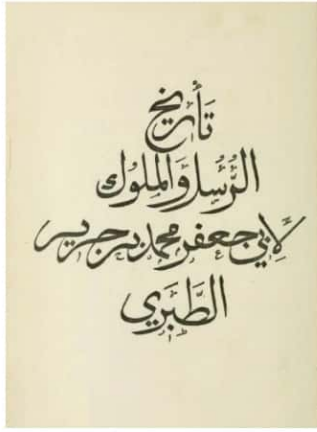 تَأريخ
الرُّسُل وَالملُوك
لأَبي جعفر محمد بن جرير
الطَّبَرِي